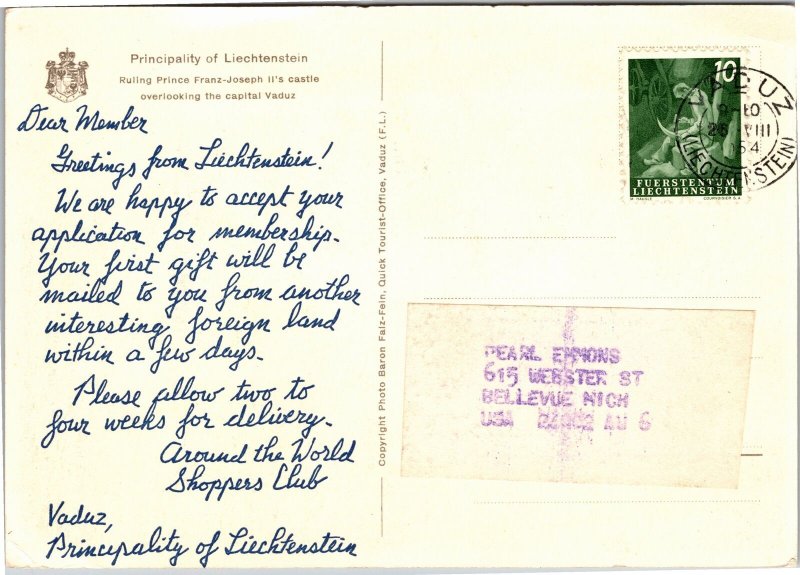 Principality of Liechtenstein
Ruling Prince Franz-Joseph II's castle
overlooking the capital Vaduz
Dear Member
Greetings from Liechtenstein!
We are happy to accept your
application for membership.
Your first gift will be
mailed to you from another
interesting foreign land
within a few days.
Please allow two to
four weeks for delivery.
Around the World
Shoppers Club
Vaduz,
Principality of Liechtenstein
Copyright Photo Baron Falz-Fein, Quick Tourist-Office, Vaduz (F.L.)
10
FUERSTENTUM
LIECHTENSTEIN
M. HÄUSLE COURVOISIER S.A.
VADUZ
28 VIII
54
(LIECHTENSTEIN)
PEARL EMMONS
615 WEBSTER ST
BELLEVUE MICH
USA AU 6